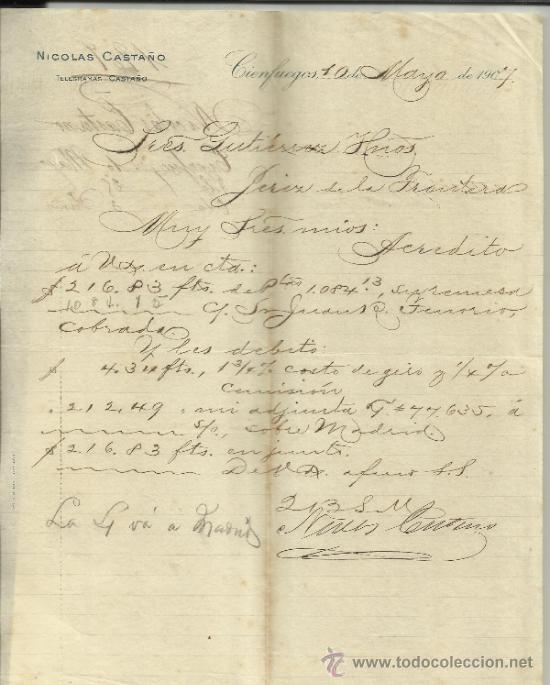 NICOLAS CASTAÑO
TELEGRAMAS: CASTAÑO
Cienfuegos, 10 de Mayo de 1907.
Sres. Gutiérrez Hnos.
Jerez de la Frontera
Muy Sres. mios:
Acredito
á Vds en cta:
$ 216.83 fts. de Ptas 1.084.13, su remesa
1084.15
c/ Sr Juan P. Tenorio,
cobrada.
Y les debito:
$ 4.34 fts, 1 3/4 % costo de giro y 1/4 %
comisión
" 212.49 " mi adjunta 77635, á
s/o, sobre Madrid.
$ 216.83 fts. en junto.
De Vds. afmo S.S.
Q B S M
Nicolas Castaño
La L vá a
www.todocoleccion.net